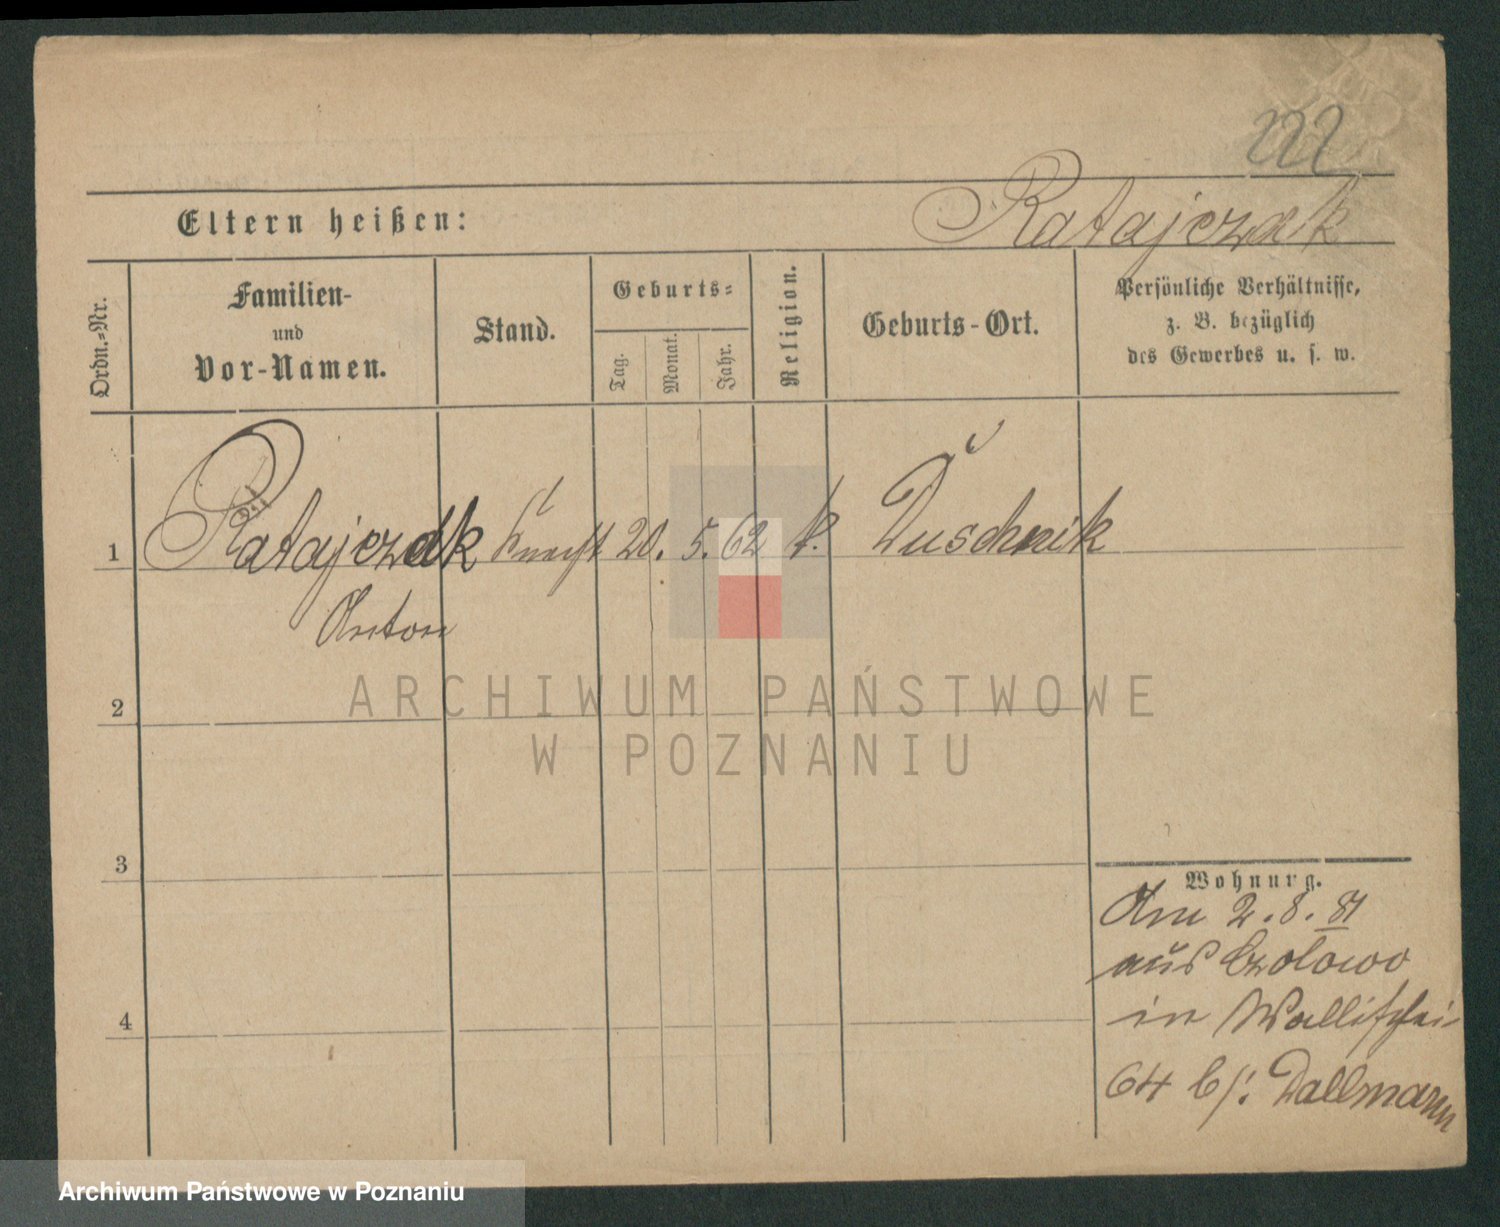 222
Ratajczak
Eltern heißen:
Ordn.-Nr.
Familien-
und
Vor-Namen.
Stand.
Geburts-
Tag.
Monat.
Jahr.
Religion.
Geburts-Ort.
Persönliche Verhältnisse,
z. B. bezüglich
des Gewerbes u. s. w.
1 Ratajczak Knecht 20. 5. 62 k. Duschnik
Anton
2
3
4
Wohnung.
Am 2. 8. 81
aus Czolowo
in Wallischei
64 b/: Dallmann
ARCHIWUM PAŃSTWOWE
W POZNANIU
Archiwum Państwowe w Poznaniu